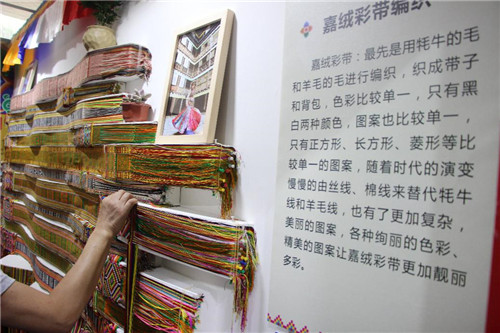 嘉绒彩带编织
嘉绒彩带：最先是用牦牛的毛
和羊毛的毛进行编织，织成带子
和背包，色彩比较单一，只有黑
白两种颜色，图案也比较单一，
只有正方形、长方形、菱形等比
较单一的图案，随着时代的演变
慢慢的由丝线、棉线来替代牦牛
线和羊毛线，也有了更加复杂，
美丽的图案，各种绚丽的色彩、
精美的图案让嘉绒彩带更加靓丽
多彩。